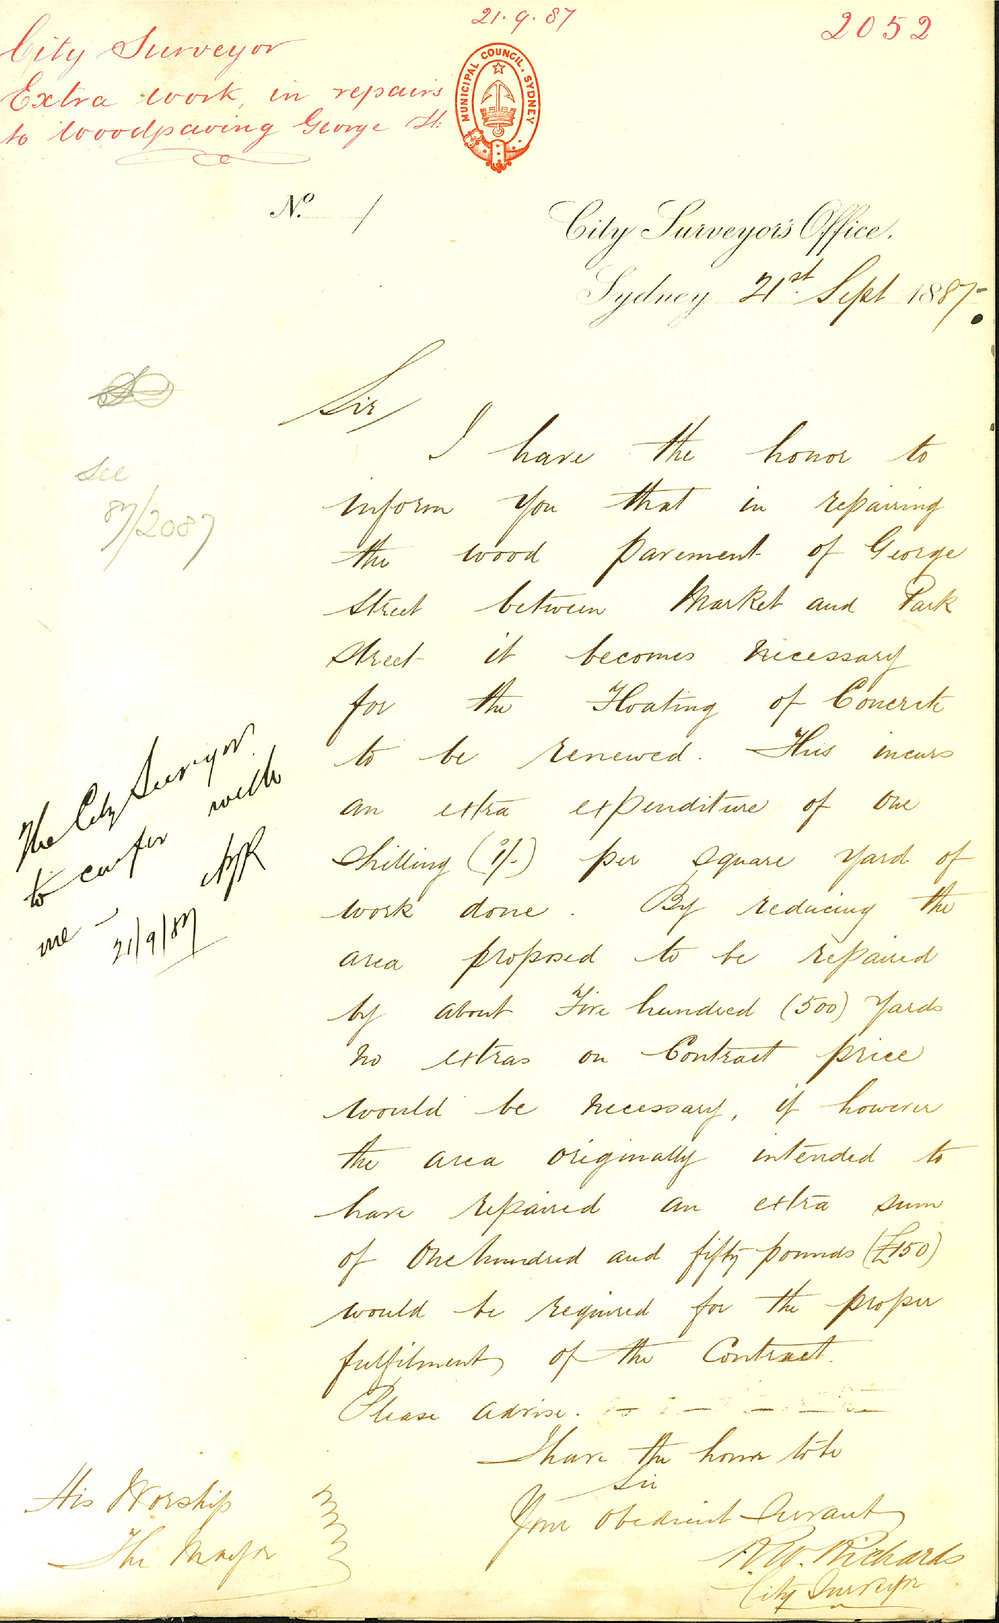 21.9.87
2052
City Surveyor
Extra work, in repairs
to Woodpaving George St:
MUNICIPAL COUNCIL. SYDNEY
No. 1
City Surveyor's Office.
Sydney 21st Sept 1887
see
87/2087
Sir/
I have the honor to
inform you that in repairing
the wood pavement of George
Street between Market and Park
Street it becomes necessary
for the Floating of Concrete
to be renewed. This incurs
an extra expenditure of one
shilling (1/-) per square yard of
work done. By reducing the
area proposed to be repaired
by about Five hundred (500) yards
no extras on Contract price
would be necessary, if however
the area originally intended to
have repaired an extra sum
of One hundred and fifty pounds (£150)
would be required for the proper
fulfilment of the Contract.
Please advise.
The City Surveyor
to confer with
me
21/9/87
I have the honor to be
Sir
Your obedient Servant
R.W. Richards
City Surveyor
His Worship
The Mayor